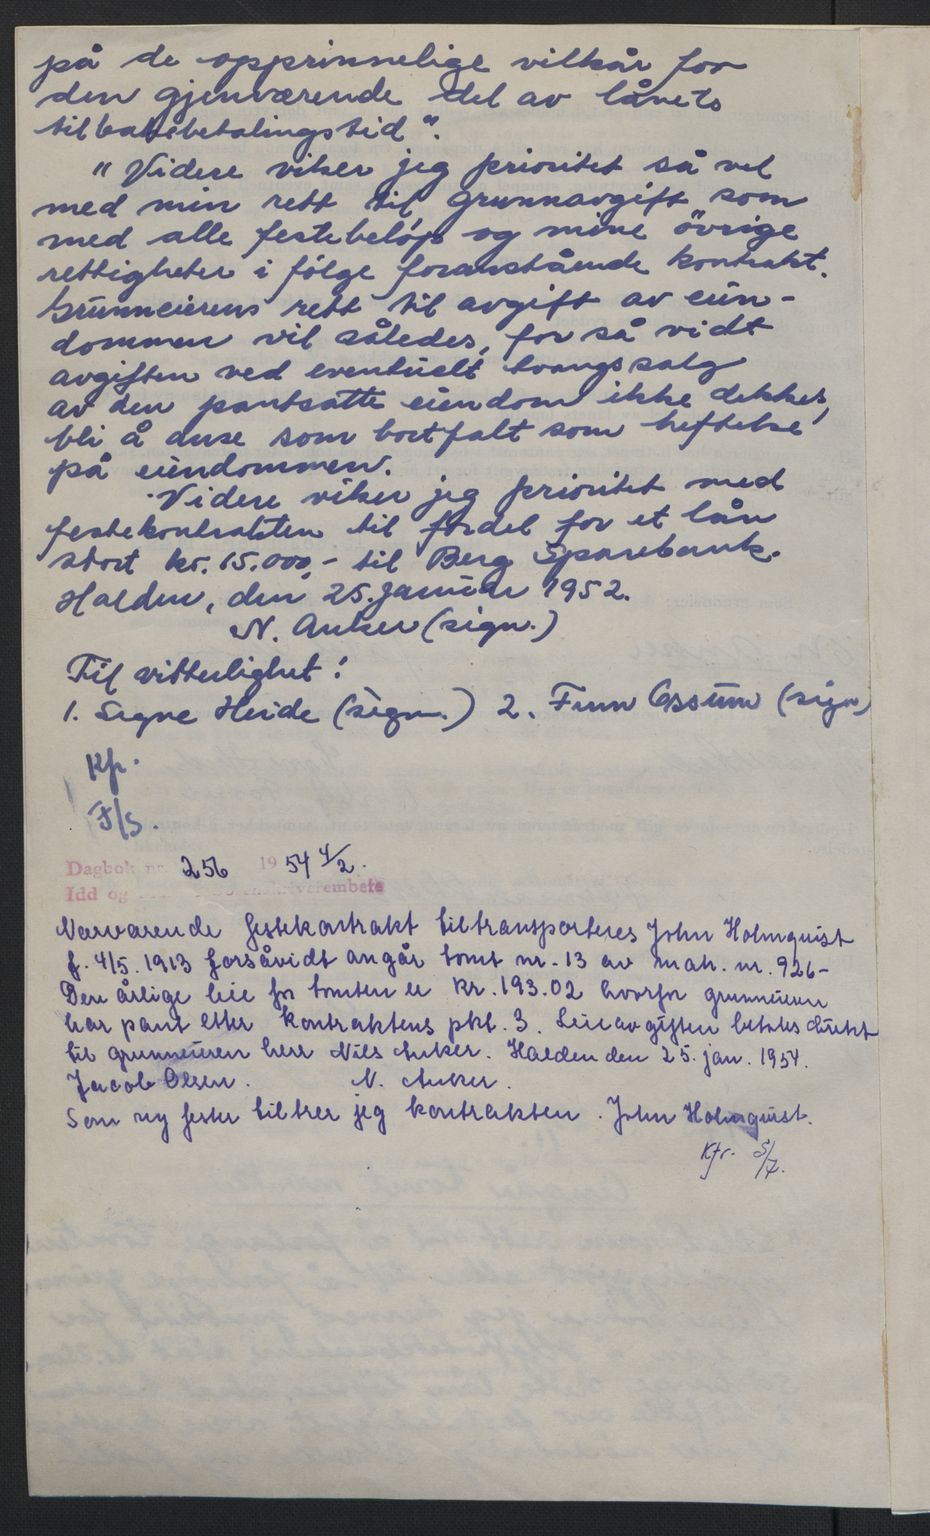 på de opprinnelige vilkår for
den gjenværende del av lånets
tilbakebetalingstid".
"Videre viker jeg prioritet så vel
med min rett til grunnavgift som
med alle festebeløp og mine övrige
rettigheter i følge foranstående kontrakt.
Grunneierens rett til avgift av eien-
dommen vil således, for så vidt
avgiften ved eventuelt tvangssalg
av den pantsatte eiendom ikke dekkes,
bli å anse som bortfalt som heftelse
på eiendommen.
Videre viker jeg prioritet med
festekontrakten til fordel for et lån
stort kr. 15.000,- til Berg Sparebank.
Halden, den 25. januar 1952.
N. Anker (sign.)
Til vitterlighet:
1. Signe Heide (sign.) 2. Finn Ossum (sign)
Kp.
F/S.
Dagbok nr. 256 1954 4/2.
Idd og skriverembete
Nærværende festekontrakt tiltransporteres John Holmquist
f. 4/5. 1913 forsåvidt angår tomt nr. 13 av matr. nr. 926-
Den årlige leie for tomten er kr. 193.02 hvorfor grunneieren
har pant etter kontraktens pkt. 3. Leieavgiften betales direkt
til grunneieren herr Nils Anker. Halden den 25. jan. 1954.
Jacob Olsen. N. Anker.
Som ny fester tiltrer jeg kontrakten. John Holmquist.
Kfr. S/7.